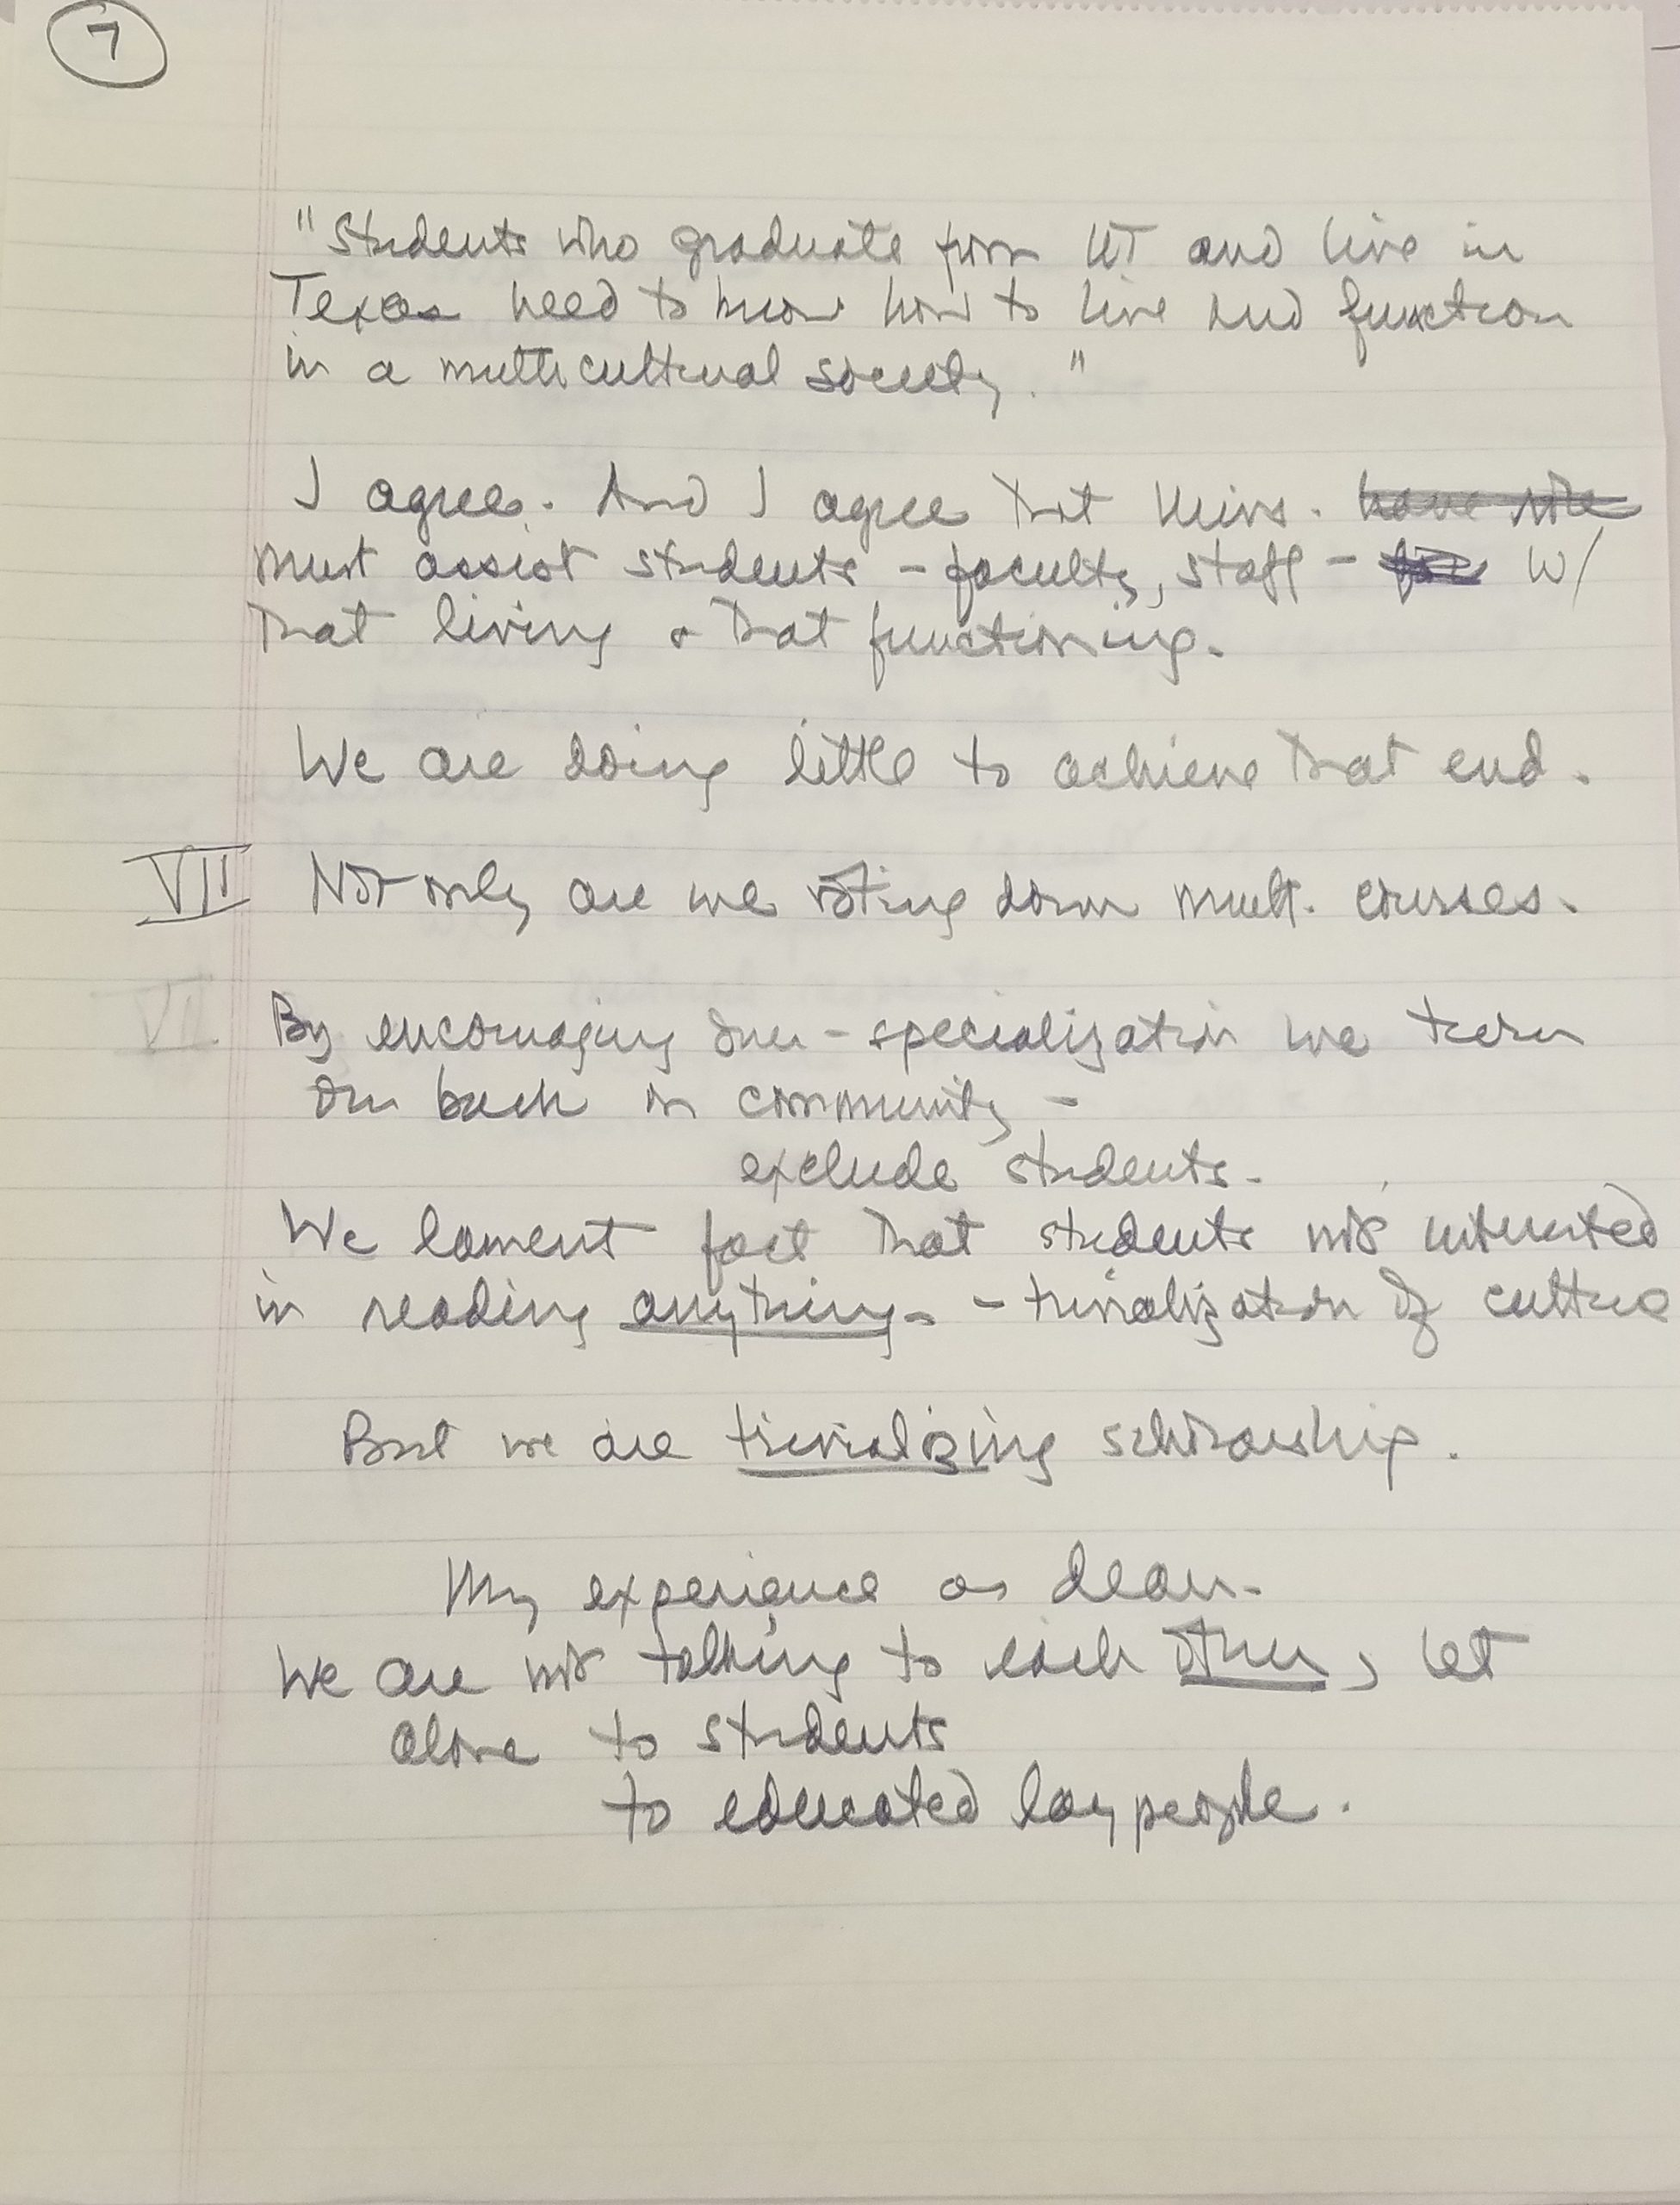 7
"Students who graduate from UT and live in
Texas need to know how to live and function
in a multicultural society."
I agree. And I agree that Univs. have role
must assist students - faculty, staff - for w/
that living & that functioning.
We are doing little to achieve that end.
VII Not only are we voting down mult. courses.
VI.
By encouraging over-specialization we turn
our back on community -
exclude students.
We lament fact that students not interested
in reading anything - - trivialization of culture
But we are trivializing scholarship.
My experience as dean.
We are not talking to each other, let
alone to students
to educated lay people.